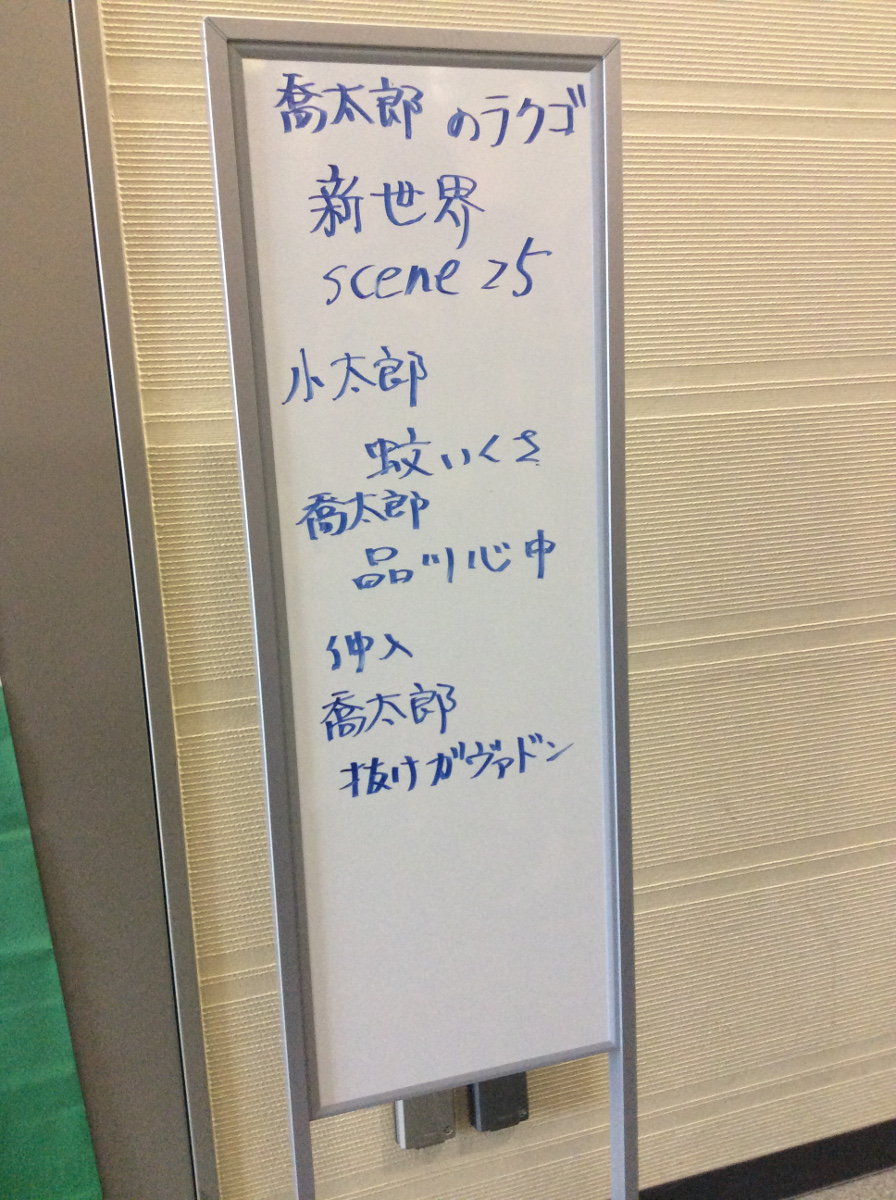 喬太郎のラクゴ
新世界
scene 25
小太郎
蚊いくさ
喬太郎
品川心中
仲入
喬太郎
抜けガヴァドン